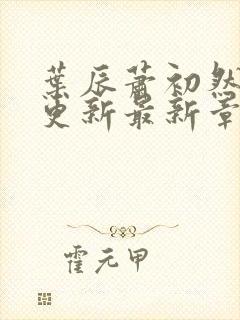 葉辰蕭初然
更新最新章
霍元甲